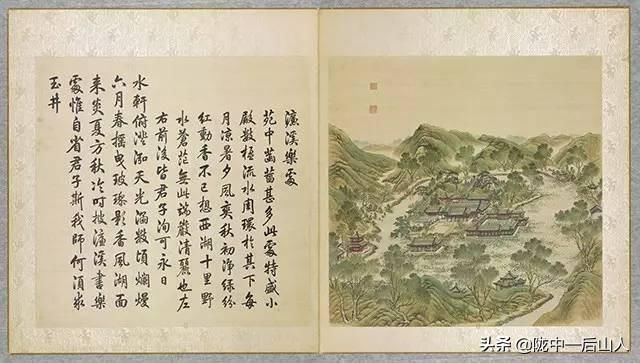 濂溪樂處
苑中菡萏甚多此處特盛小
殿數楹流水周環於其下每
月凉暑夕風爽秋初淨綠紛
紅動香不已想西湖十里野
水蒼茫無此端嚴清麗也左
右前後皆君子洵可永日
水軒俯澄泓天光涵數頃爛熳
六月春搖曳玻瓈影香風湖面
來炎夏方秋冷时披濂溪書樂
處惟自省君子斯我師何須求
玉井
头条 @陇中一后山人